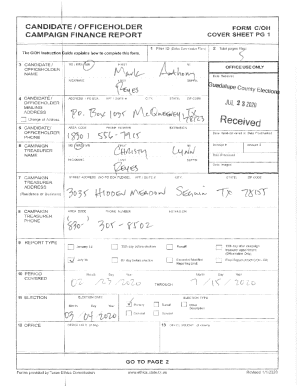 CANDIDATE / OFFICEHOLDER
CAMPAIGN FINANCE REPORT
FORM C/OH
COVER SHEET PG 1
The C/OH Instruction Guide explains how to complete this form.
1 Filer ID (Ethics Commission Filers)
2 Total pages filed:
5
3 CANDIDATE / OFFICEHOLDER NAME
MS / MRS / MR
FIRST
MI
Mark Anthony
NICKNAME
LAST
SUFFIX
Reyes
OFFICE USE ONLY
Date Received
Guadalupe County Elections
JUL 23 2020
Received
4 CANDIDATE / OFFICEHOLDER MAILING ADDRESS
Change of Address
ADDRESS / PO BOX; APT / SUITE #; CITY; STATE; ZIP CODE
P.O. Box 1095 McQueeney, TX 78123
5 CANDIDATE / OFFICEHOLDER PHONE
AREA CODE
PHONE NUMBER
EXTENSION
(830) 556-7915
6 CAMPAIGN TREASURER NAME
MS / MRS / MR
FIRST
MI
Christy Lynn
NICKNAME
LAST
SUFFIX
Reyes
Receipt #
Amount $
Date Processed
Date Imaged
7 CAMPAIGN TREASURER ADDRESS
(Residence or Business)
STREET ADDRESS (NO PO BOX PLEASE); APT / SUITE #; CITY; STATE; ZIP CODE
3035 HIDDEN MEADOW Seguin TX 78155
8 CAMPAIGN TREASURER PHONE
AREA CODE
PHONE NUMBER
EXTENSION
(830) 305-8502
9 REPORT TYPE
January 15
30th day before election
Runoff
July 15
8th day before election
10 PERIOD COVERED
Month Day Year
02 / 23 / 2020
THROUGH
Month Day Year
7 / 15 / 2020
11 ELECTION
ELECTION DATE
Month Day Year
03 04 2020
ELECTION TYPE
Primary
Runoff
General
Special
12 OFFICE
OFFICE HELD (if any)
13
GO TO PAGE 2
Forms provided by Texas Ethics Commission
www.ethics.state.tx.us
Revised 1/1/2020